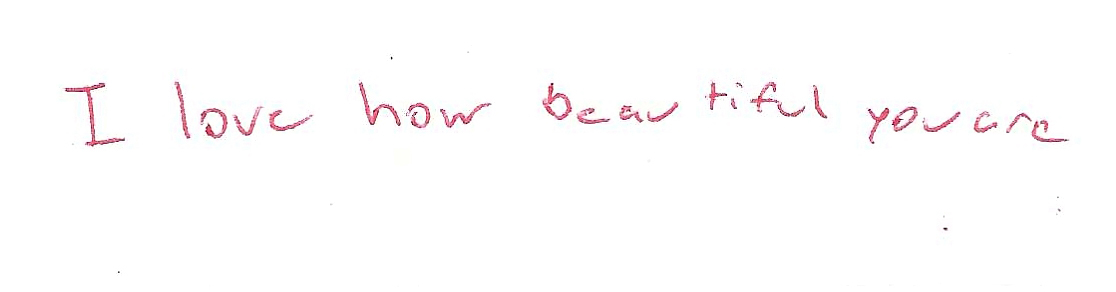 I love how beautiful you are